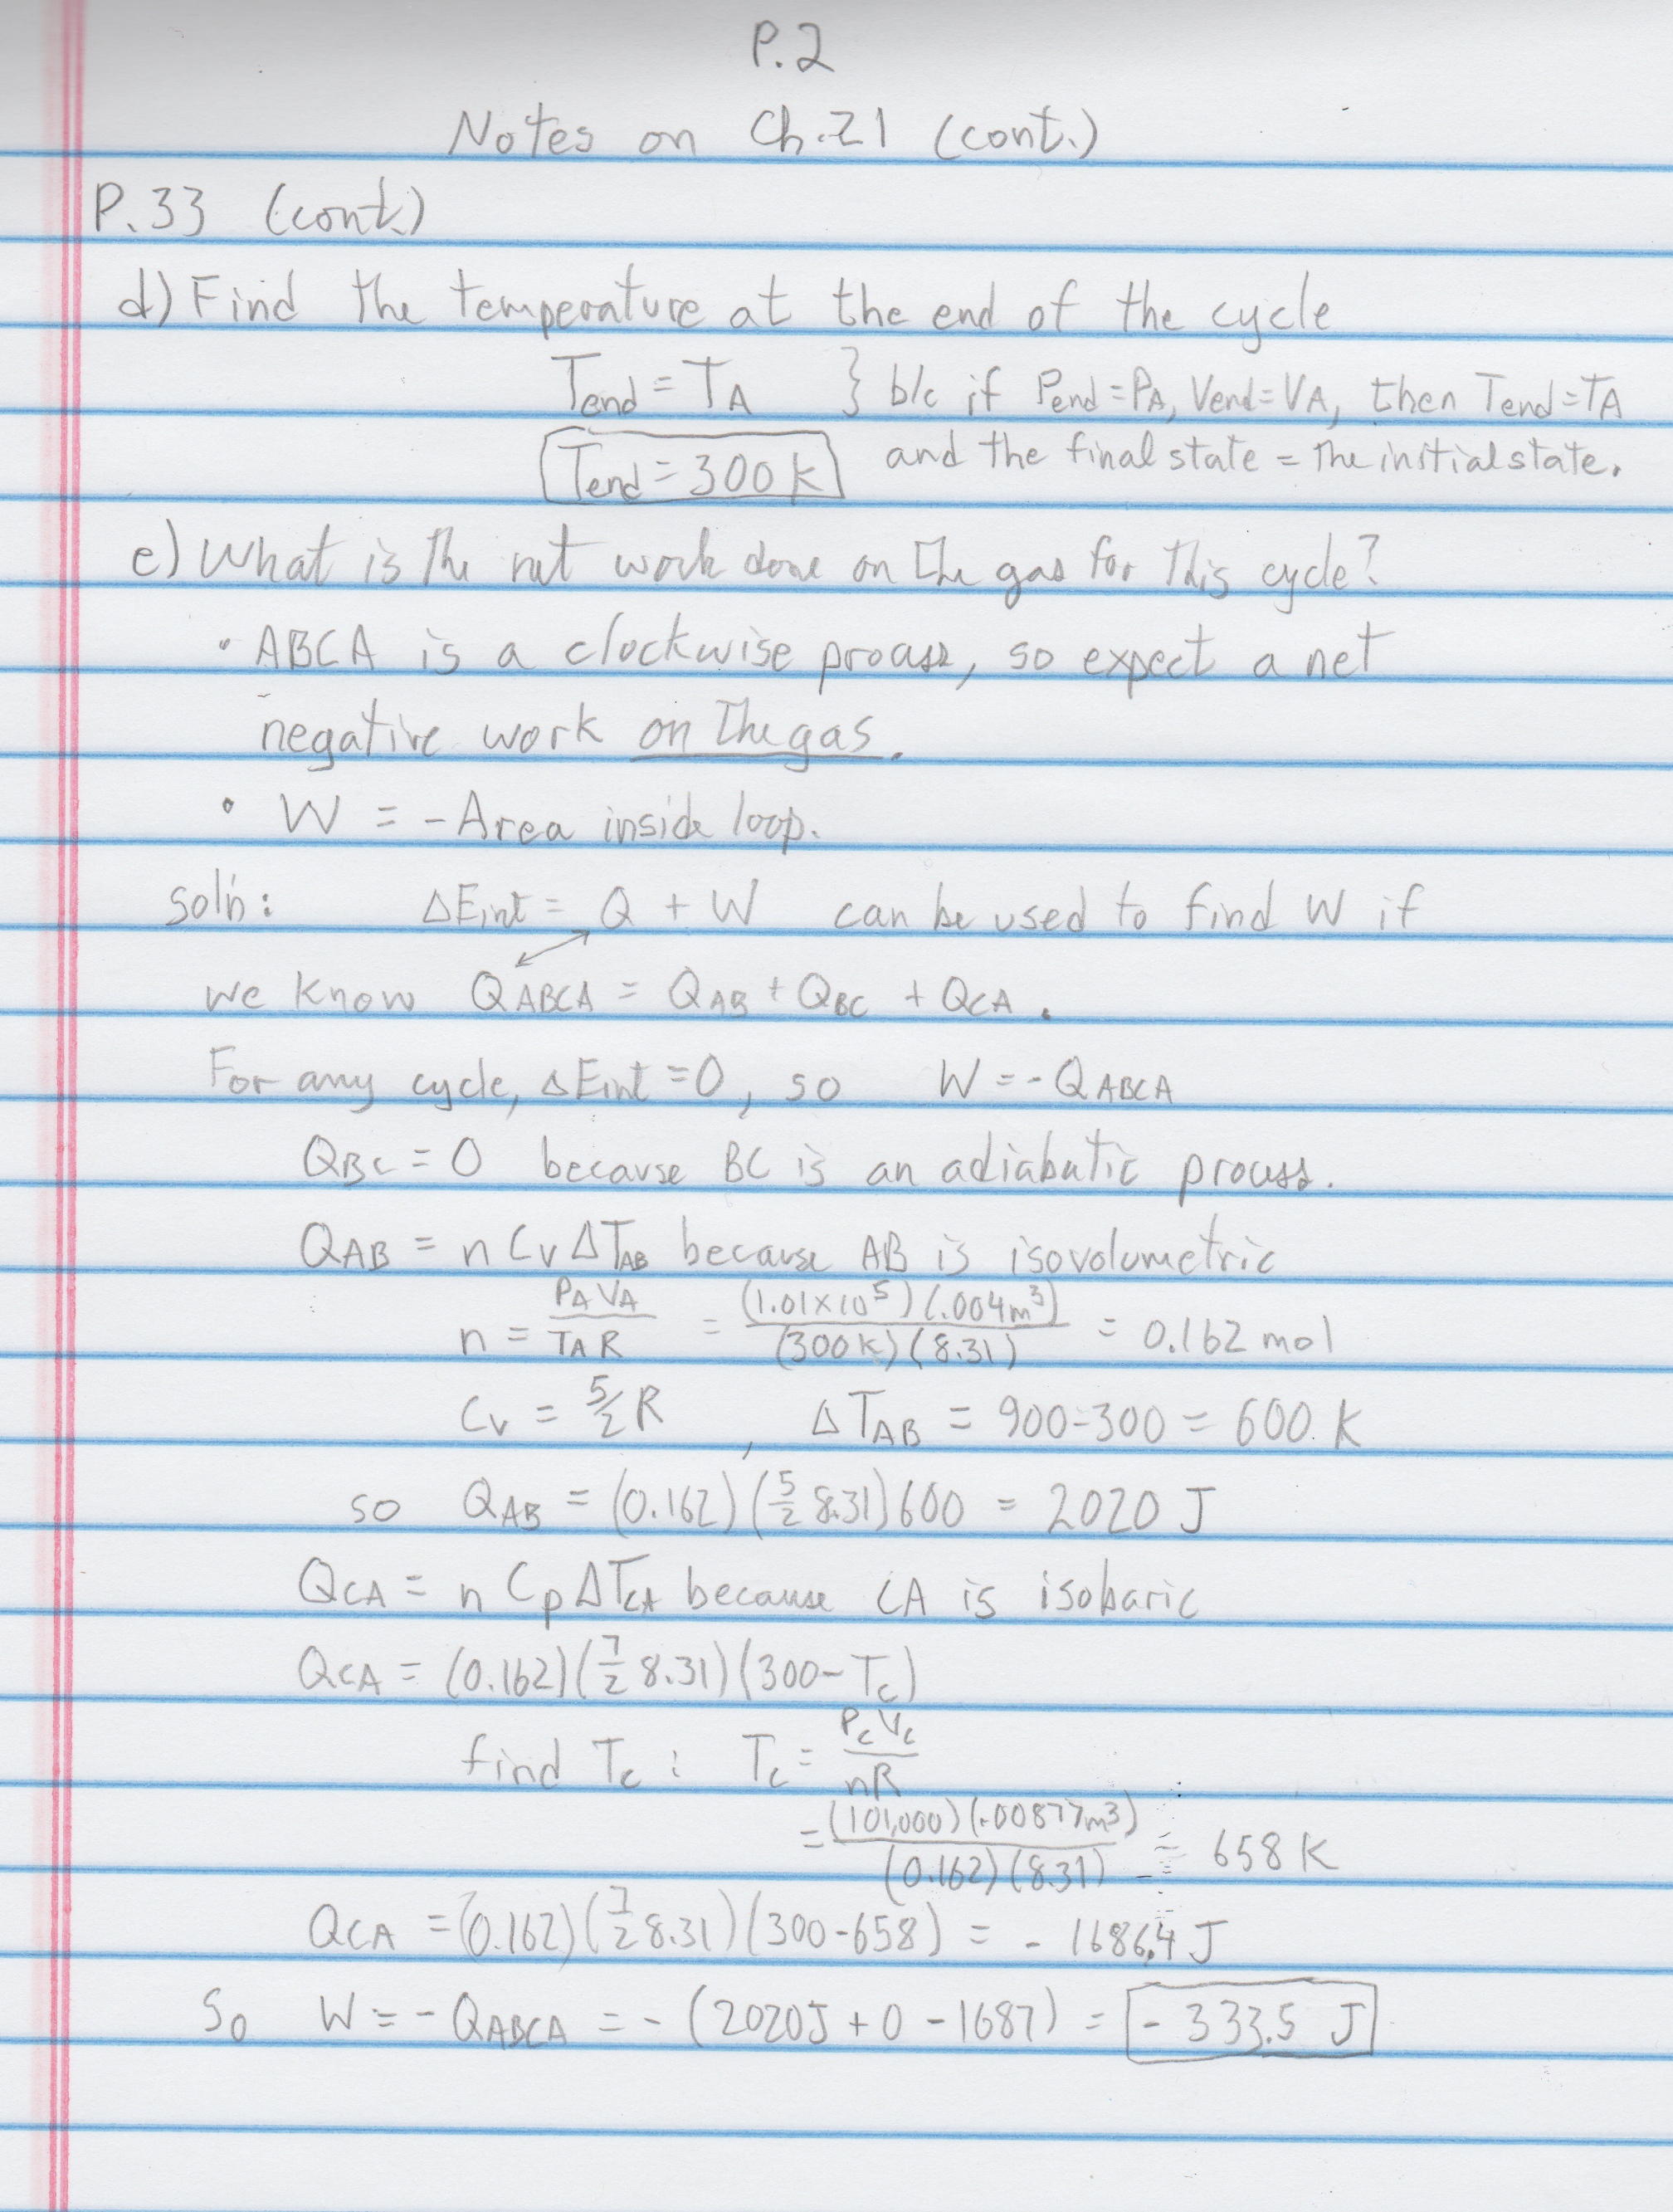 P.2
Notes on Ch.21 (cont.)
P.33 (cont.)
d) Find the temperature at the end of the cycle
Tend = TA } b/c if Pend=PA, Vend=VA, then Tend=TA
Tend = 300 K and the final state = the initial state.
e) What is the net work done on the gas for this cycle?
• ABCA is a clockwise process, so expect a net
negative work on the gas.
• W = -Area inside loop.
soln: ΔEint = Q + W can be used to find W if
we know QABCA = QAB + QBC + QCA.
For any cycle, ΔEint = 0, so W = -QABCA
QBC = 0 because BC is an adiabatic process.
QAB = n Cv ΔTAB because AB is isovolumetric
n = PA VA / TA R = (1.01×10^5)(.004m^3) / (300K)(8.31) = 0.162 mol
Cv = 5/2 R, ΔTAB = 900-300 = 600 K
so QAB = (0.162)(5/2 8.31)600 = 2020 J
QCA = n Cp ΔTCA because CA is isobaric
QCA = (0.162)(7/2 8.31)(300-Tc)
find Tc: Tc = Pc Vc / nR
= (101,000)(.00877m^3) / (0.162)(8.31) = 658 K
QCA = (0.162)(7/2 8.31)(300-658) = -1686.4 J
So W = -QABCA = -(2020J + 0 - 1687) = -333.5 J